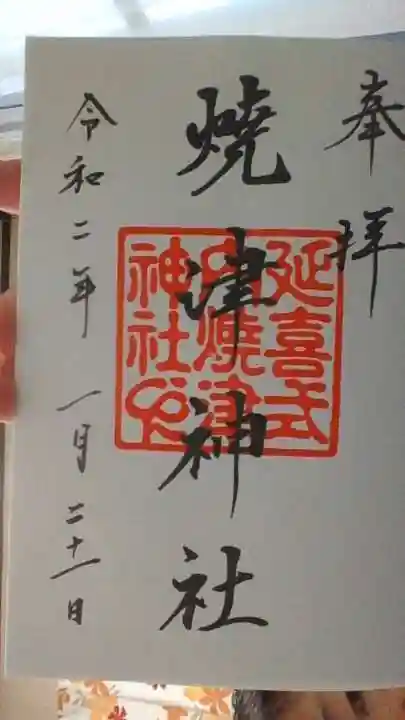 奉拝
燒津神社
延喜式
内燒津
神社印
令和二年 一月二十一日